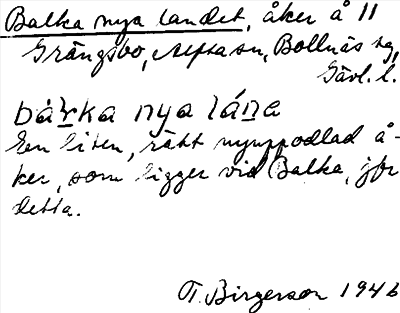 Balka nya landet, åker å 11
Grängsbo, Alfta sn, Bollnäs tg,
Gävl. l.
bárka nya lána
En liten, rätt nyuppodlad å-
ker, som ligger vid Balka, jfr
detta.
T. Birgerson 1946